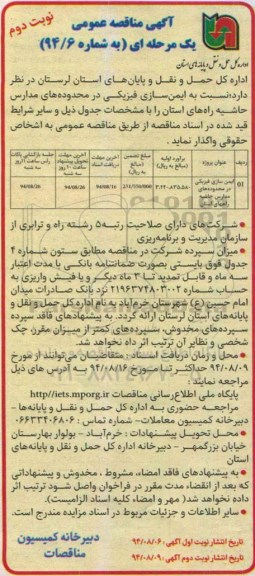 نوبت دوم
آگهی مناقصه عمومی
یک مرحله ای (به شماره ۹۴/۶)
اداره کل حمل و نقل و پایانه های استان
اداره کل حمل و نقل و پایان‌های استان لرستان در نظر
دارد؛نسبت به ایمن‌سازی فیزیکی در محدوده‌های مدارس
حاشیه راه‌های استان را با مشخصات جدول ذیل و سایر شرایط
قید شده در اسناد مناقصه از طریق مناقصه عمومی به اشخاص
حقوقی واگذار نماید .
ردیف عنوان پروژه برآورد اولیه (به ریال) مبلغ تضمین (به ریال) آخرین مهلت دریافت اسناد آخرین مهلت تحویل پیشنهاد
01 ایمن سازی فیزیکی در محدوده‌های مدارس حاشیه راه‌های استان 94/08/16 94/08/26 94/08/26
• شرکت‌های دارای صلاحیت رتبه۵ رشته راه و ترابری از
سازمان مدیریت و برنامه‌ریزی
• میزان سپرده شرکت در مناقصه مطابق ستون شماره ۴
جدول فوق بایستی بصورت ضمانتنامه بانکی با مدت اعتبار
سه ماه و قابل تمدید تا ۳ ماه دیگر و یا فیش واریزی به
حساب شماره ۲۱۹۶۳۷۴۸۰۳۰۰۲ نزد بانک صادرات میدان
امام حسین(ع) شهرستان خرم‌آباد به نام اداره کل حمل و نقل و
پایانه‌های استان لرستان ارائه گردد. به پیشنهادهای فاقد سپرده
سپرده‌های مخدوش، سپرده‌های کمتر از میزان مقرر، چک
شخصی و نظایر آن ترتیب اثر داده نخواهد شد.
• محل و زمان دریافت اسناد : متقاضیان می‌توانند از مورخ
۹۴/۰۸/۰۹ حداکثر تا مورخ ۹۴/۰۸/۱۶ به آدرس های ذیل
مراجعه نمایند :
پایگاه ملی اطلاع‌رسانی مناقصات http//iets.mporg.ir
مراجعه حضوری به اداره کل حمل و نقل و پایانه‌ها -
دبیرخانه کمیسیون معاملات- شماره تماس : ۰۶۶۳۳۴۰۶۸۰۶
• محل تحویل پیشنهادات : خرم‌آباد - بولوار بهارستان
خیابان بزرگمهر - دبیرخانه اداره کل حمل و نقل و پایانه‌های
استان
• به پیشنهادهای فاقد امضاء، مشروط ، مخدوش و پیشنهاداتی
که بعد از انقضاء مدت مقرر در فراخوان واصل شود ترتیب اثر
داده نخواهد شد( مهر و امضاء کلیه اسناد الزامیست).
• سایر اطلاعات و جزئیات مربوط در اسناد مزایده مندرج است.
تاریخ انتشار نوبت اول آگهی : ۹۴/۰۸/۰۶
تاریخ انتشار نوبت دوم آگهی : ۹۴/۰۸/۰۹
دبیرخانه کمیسیون
مناقصات